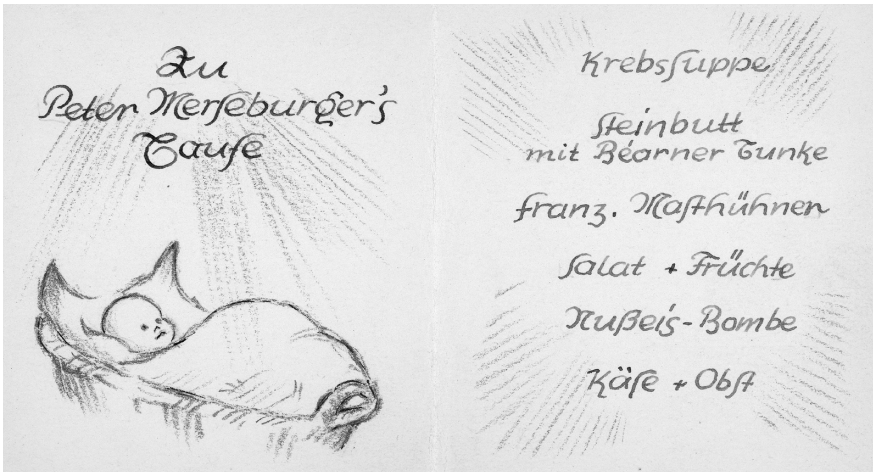 Zu
Peter Merseburger's
Taufe
Krebsſuppe
Steinbutt
mit Béarner Tunke
franz. Maſthühner
Salat + Früchte
Nußeis-Bombe
Käſe + Obſt